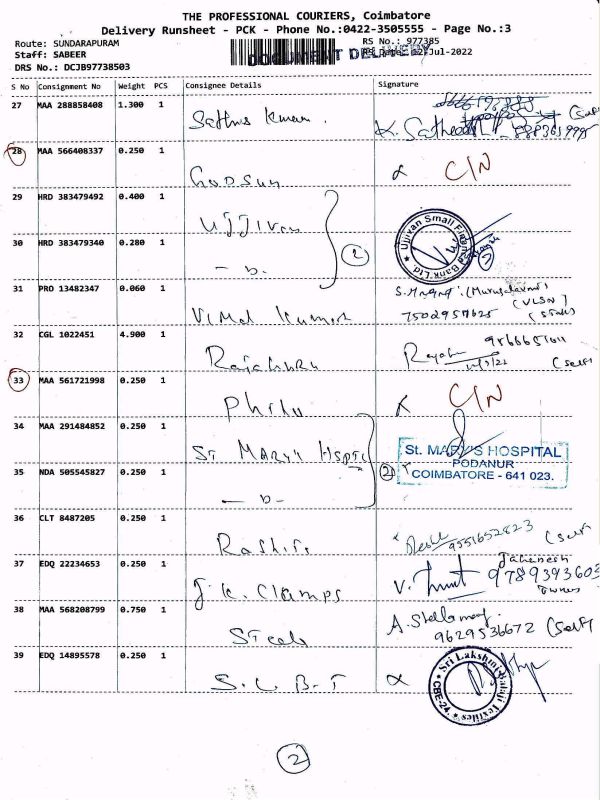 THE PROFESSIONAL COURIERS, Coimbatore
Delivery Runsheet - PCK - Phone No.:0422-3505555 - Page No.:3
Route: SUNDARAPURAM RS No.: 977385
Staff: SABEER RS Date: 12-Jul-2022
DRS No.: DCJB97738503
DOCUMENT DELIVERY
S No Consignment No Weight PCS Consignee Details Signature
27 MAA 288858408 1.300 1 Sathis Kumar. (self
8883619995
28 MAA 566408337 0.250 1 C/N
29 HRD 383479492 0.400 1 Ujjivan
Ujjivan Small Finance Bank Ltd
30 HRD 383479340 0.280 1 - D - 2
31 PRO 13482347 0.060 1 Vimal Kumar
7502957625
32 CGL 1022451 4.900 1 Rajaguru (self
33 MAA 561721998 0.250 1 C/N
34 MAA 291484852 0.250 1 ST MARY'S HSPTL
St. MARY'S HOSPITAL
PODANUR
COIMBATORE - 641 023.
35 NDA 505545827 0.250 1 - D - 2
36 CLT 8487205 0.250 1 9551652823 (self
37 EDQ 22234653 0.250 1 J.K. Clamps 9789393603
owner
38 MAA 568208799 0.750 1 A. Stella mary
9629536672 (self)
39 EDQ 14895578 0.250 1 S.L.B.T
Sri Lakshmi Balaji Textiles
CBE-24.
2